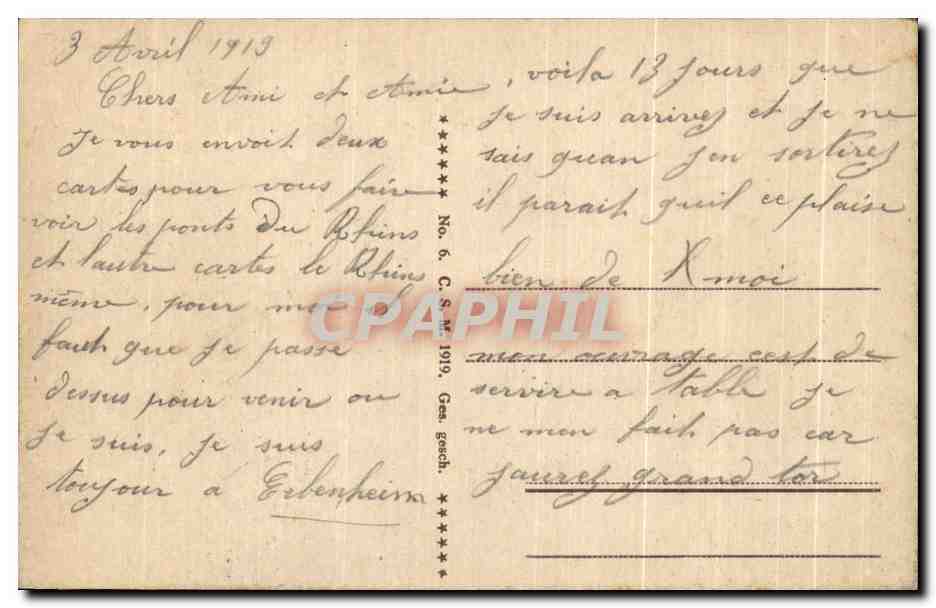 3 Avril 1919
Chers Ami et Amie
Je vous envoit deux
cartes pour vous faire
voir les ponts Du Rhins
et l'autre cartes le Rhins
même, pour moi il
faut que je passe
dessus pour venir ou
Je suis, Je suis
toujour a Erbenheim
, voila 13 Jours que
Je suis arrivez et Je ne
sais quan J'en sortirez
il parait qu'il ce plaise
bien de X moi
mon ouvrage cest de
servire a table Je
ne men fait pas car
Jaurez grand tor
★★★★★★ No. 6. C. S. M. 1919. Ges. gesch. ★★★★★★
CPAPHIL